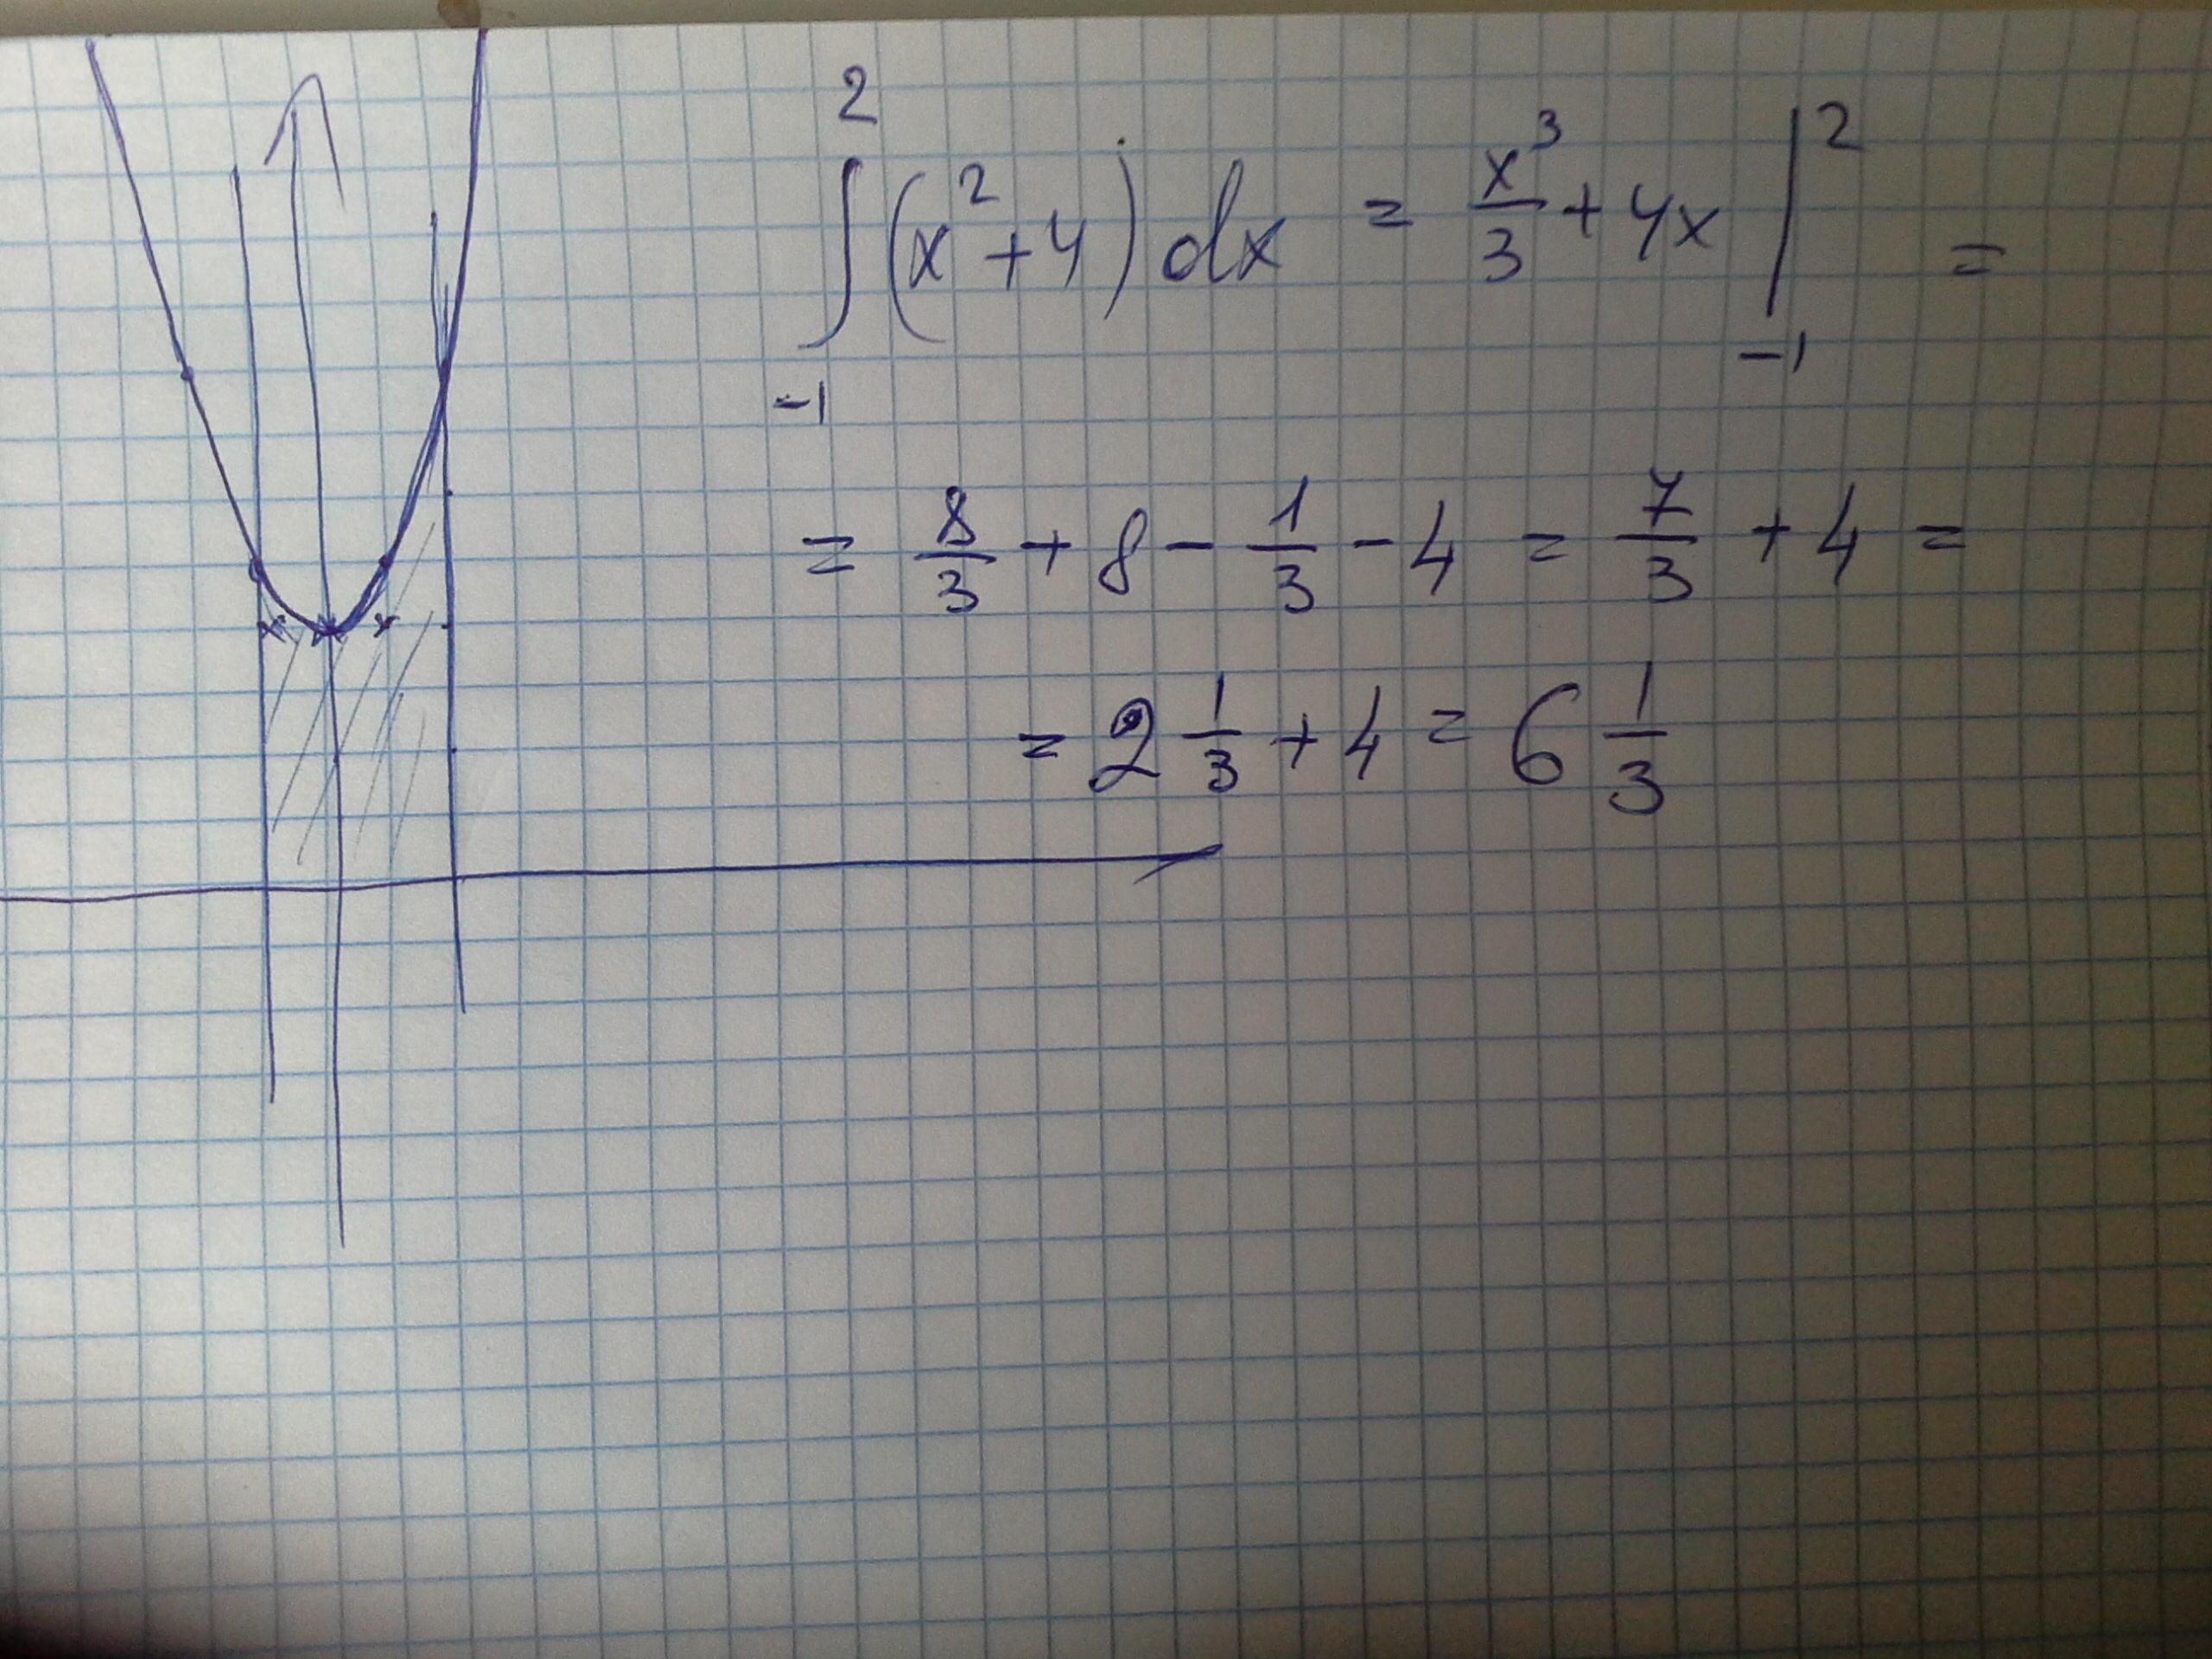 ∫₋₁² (x²+4) dx = x³/3 + 4x |₋₁² =
= 8/3 + 8 - 1/3 - 4 = 7/3 + 4 =
= 2 1/3 + 4 = 6 1/3